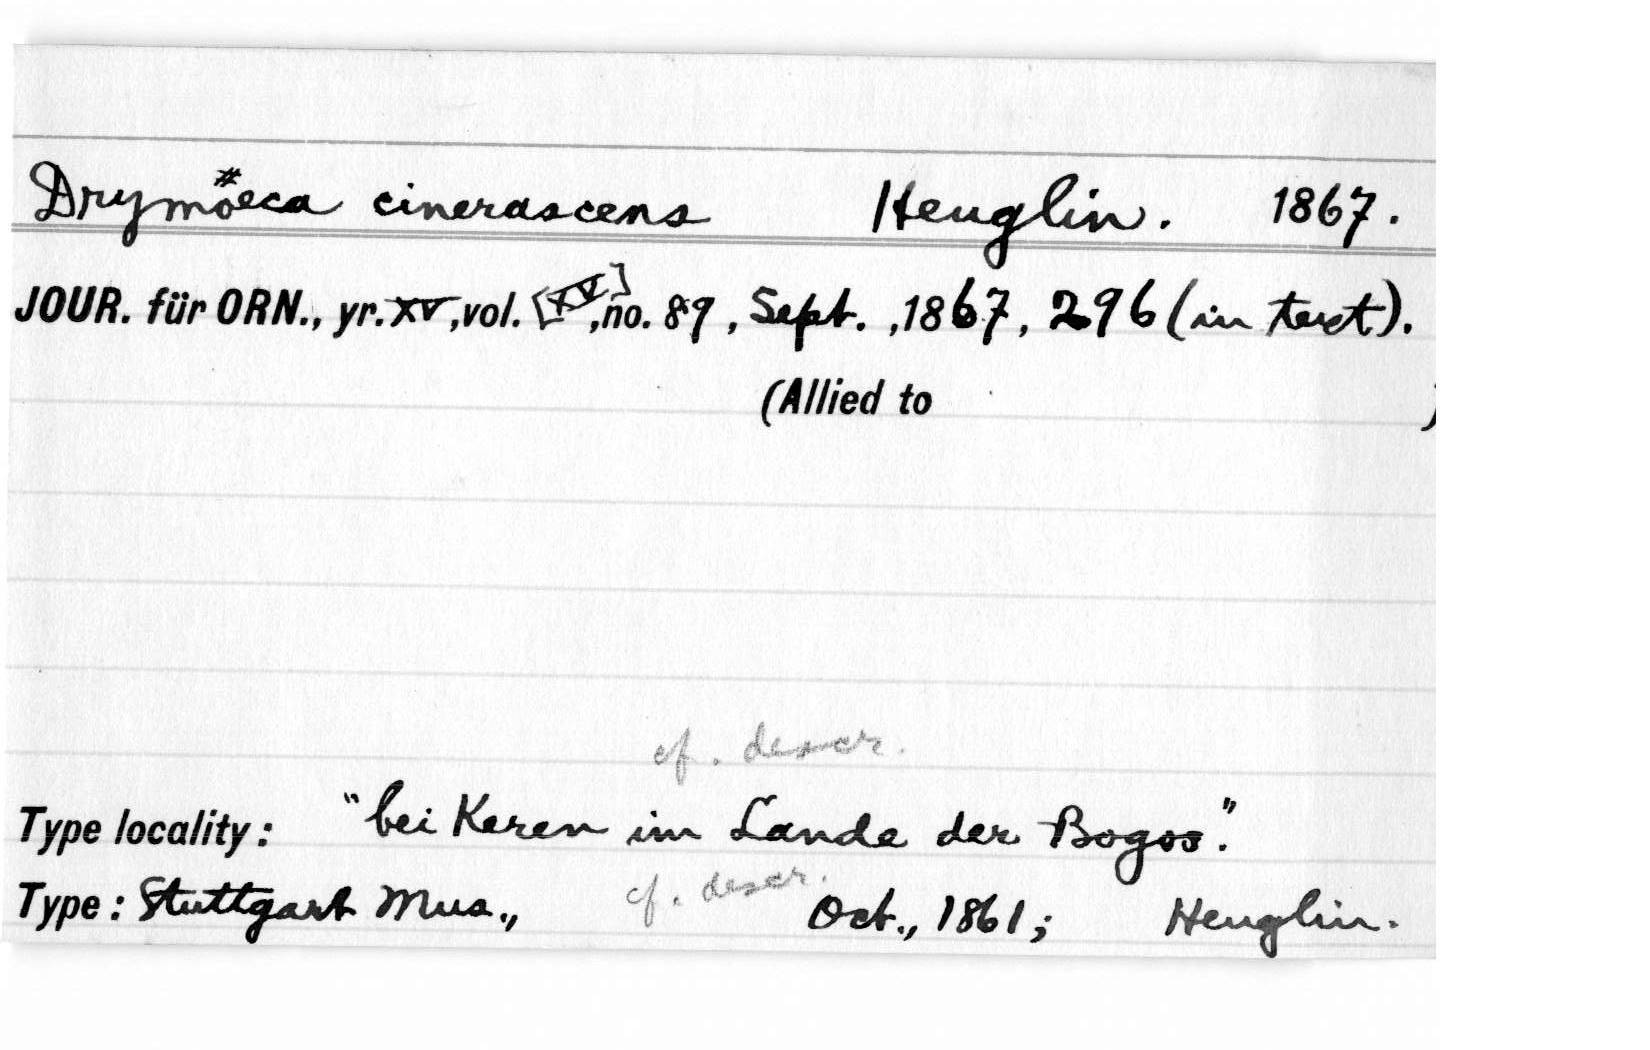 Drymöeca cinerascens Heuglin. 1867.
JOUR. für ORN., yr. XV, vol. [XV], no. 89, Sept., 1867, 296 (in text).
(Allied to )
cf. descr.
Type locality: "bei Keren im Lande der Bogos."
Type: Stuttgart Mus., cf. descr. Oct., 1861; Heuglin.